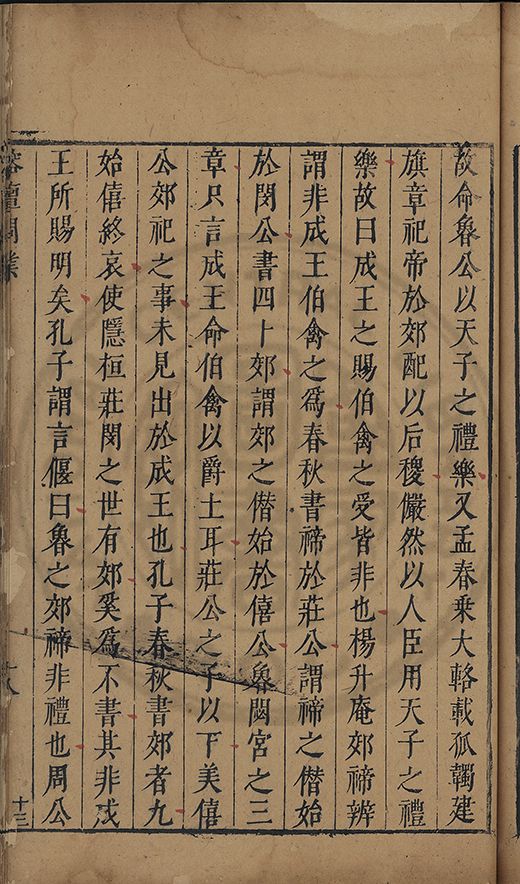 故命魯公以天子之禮樂又孟春乘大輅載狐韣建
旗章祀帝於郊配以后稷儼然以人臣用天子之禮
樂故曰成王之賜伯禽之受皆非也楊升庵郊禘辨
謂非成王伯禽之爲春秋書禘於莊公謂禘之僭始
於閔公書四卜郊謂郊之僭始於僖公魯閟宮之三
章只言成王命伯禽以爵土耳莊公之子以下美僖
公郊祀之事未見出於成王也孔子春秋書郊者九
始僖終哀使隱桓莊閔之世有郊奚爲不書其非成
王所賜明矣孔子謂言偃曰魯之郊禘非禮也周公
十三